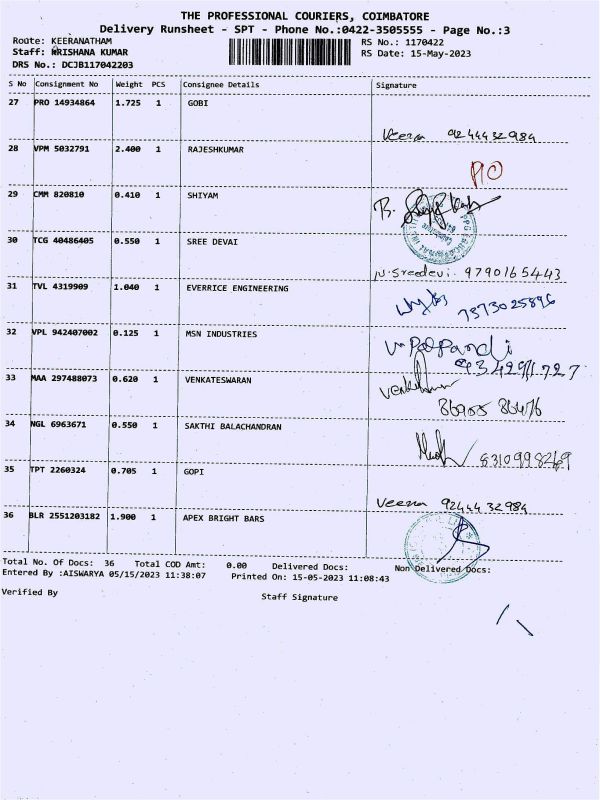 THE PROFESSIONAL COURIERS, COIMBATORE
Delivery Runsheet - SPT - Phone No.:0422-3505555 - Page No.:3
Route: KEERANATHAM RS No.: 1170422
Staff: KRISHANA KUMAR RS Date: 15-May-2023
DRS No.: DCJB117042203
S No Consignment No Weight PCS Consignee Details Signature
27 PRO 14934864 1.725 1 GOBI
Veera 9244432984
28 VPM 5032791 2.400 1 RAJESHKUMAR
P/O
29 CMM 820810 0.410 1 SHIYAM
B.
30 TCG 40486405 0.550 1 SREE DEVAI
N. Sreedevi. 9790165443
31 TVL 4319909 1.040 1 EVERRICE ENGINEERING
7373025896
32 VPL 942407002 0.125 1 MSN INDUSTRIES
33 MAA 297488073 0.620 1 VENKATESWARAN
34 NGL 6963671 0.550 1 SAKTHI BALACHANDRAN
35 TPT 2260324 0.705 1 GOPI
Veera 9244432984
36 BLR 2551203182 1.900 1 APEX BRIGHT BARS
Total No. Of Docs: 36 Total COD Amt: 0.00 Delivered Docs: Non Delivered Docs:
Entered By :AISWARYA 05/15/2023 11:38:07 Printed On: 15-05-2023 11:08:43
Verified By Staff Signature